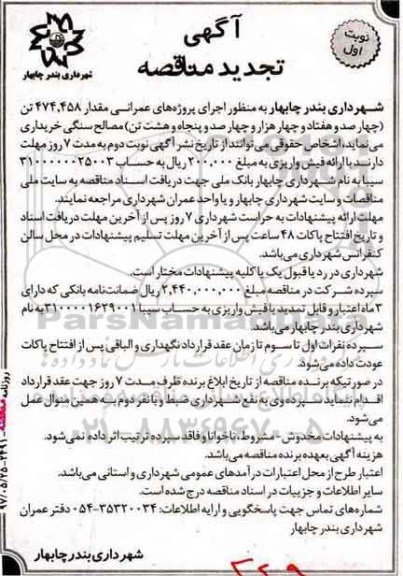 آگهی
تجدید مناقصه
نوبت اول
شهرداری بندر چابهار
شهرداری بندر چابهار به منظور اجرای پروژه‌های عمرانی مقدار ۴۷۴,۴۵۸ تن
(چهارصد و هفتاد و چهار هزار و چهارصد و پنجاه و هشت تن) مصالح سنگی خریداری
می‌نماید، اشخاص حقوقی می‌توانند از تاریخ نشر آگهی نوبت دوم به مدت ۷ روز مهلت
دارند با ارائه فیش واریزی به مبلغ ۲۰۰,۰۰۰ ریال به حساب ۳۱۰۰۰۰۰۰۲۵۰۰۳
سیبا به نام شهرداری چابهار بانک ملی جهت دریافت اسناد مناقصه به سایت ملی
مناقصات و سایت شهرداری چابهار و یا واحد عمران شهرداری مراجعه نمایند.
مهلت ارائه پیشنهادات به حراست شهرداری ۷ روز پس از آخرین مهلت دریافت اسناد
و تاریخ افتتاح پاکات ۴۸ ساعت پس از آخرین مهلت تسلیم پیشنهادات در محل سالن
کنفرانس شهرداری می‌باشد.
شهرداری در رد یا قبول یک یا کلیه پیشنهادات مختار است.
سپرده شرکت در مناقصه مبلغ ۲,۴۴۰,۰۰۰,۰۰۰ ریال ضمانت‌نامه بانکی که دارای
۳ ماه اعتبار و قابل تمدید یا فیش واریزی به حساب سیبا ۳۱۰۰۰۰۱۶۲۹۰۰۱ به نام
شهرداری بندر چابهار می‌باشد.
سپرده نفرات اول تا سوم تا زمان عقد قرارداد نگهداری و الباقی پس از افتتاح پاکات
عودت داده می‌شود.
در صورتیکه برنده مناقصه از تاریخ ابلاغ برنده ظرف مدت ۷ روز جهت عقد قرارداد
اقدام ننماید سپرده وی به نفع شهرداری ضبط و با نفر دوم به همین منوال عمل
می‌شود.
به پیشنهادات مخدوش - مشروط، ناخوانا و فاقد سپرده ترتیب اثر داده نمی‌شود.
هزینه آگهی به عهده برنده مناقصه می‌باشد.
اعتبار طرح از محل اعتبارات درآمدهای عمومی شهرداری و استانی می‌باشد.
سایر اطلاعات و جزییات در اسناد مناقصه درج شده است.
شماره‌های تماس جهت پاسخگویی و ارایه اطلاعات: ۳۵۳۲۰۰۳۴-۰۵۴ دفتر عمران
شهرداری بندر چابهار
شهرداری بندر چابهار
روزنامه مناقصه ۲۴۹۱-۹۷/۰۵/۲۵
ParsNamadData
۰۲۱-۸۸۳۴۹۶۷۰-۵